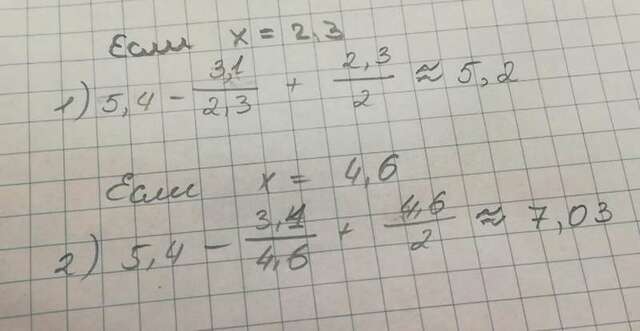 Если x = 2,3
1) 5,4 - 3,1/2,3 + 2,3/2 ≈ 5,2
Если x = 4,6
2) 5,4 - 3,1/4,6 + 4,6/2 ≈ 7,03